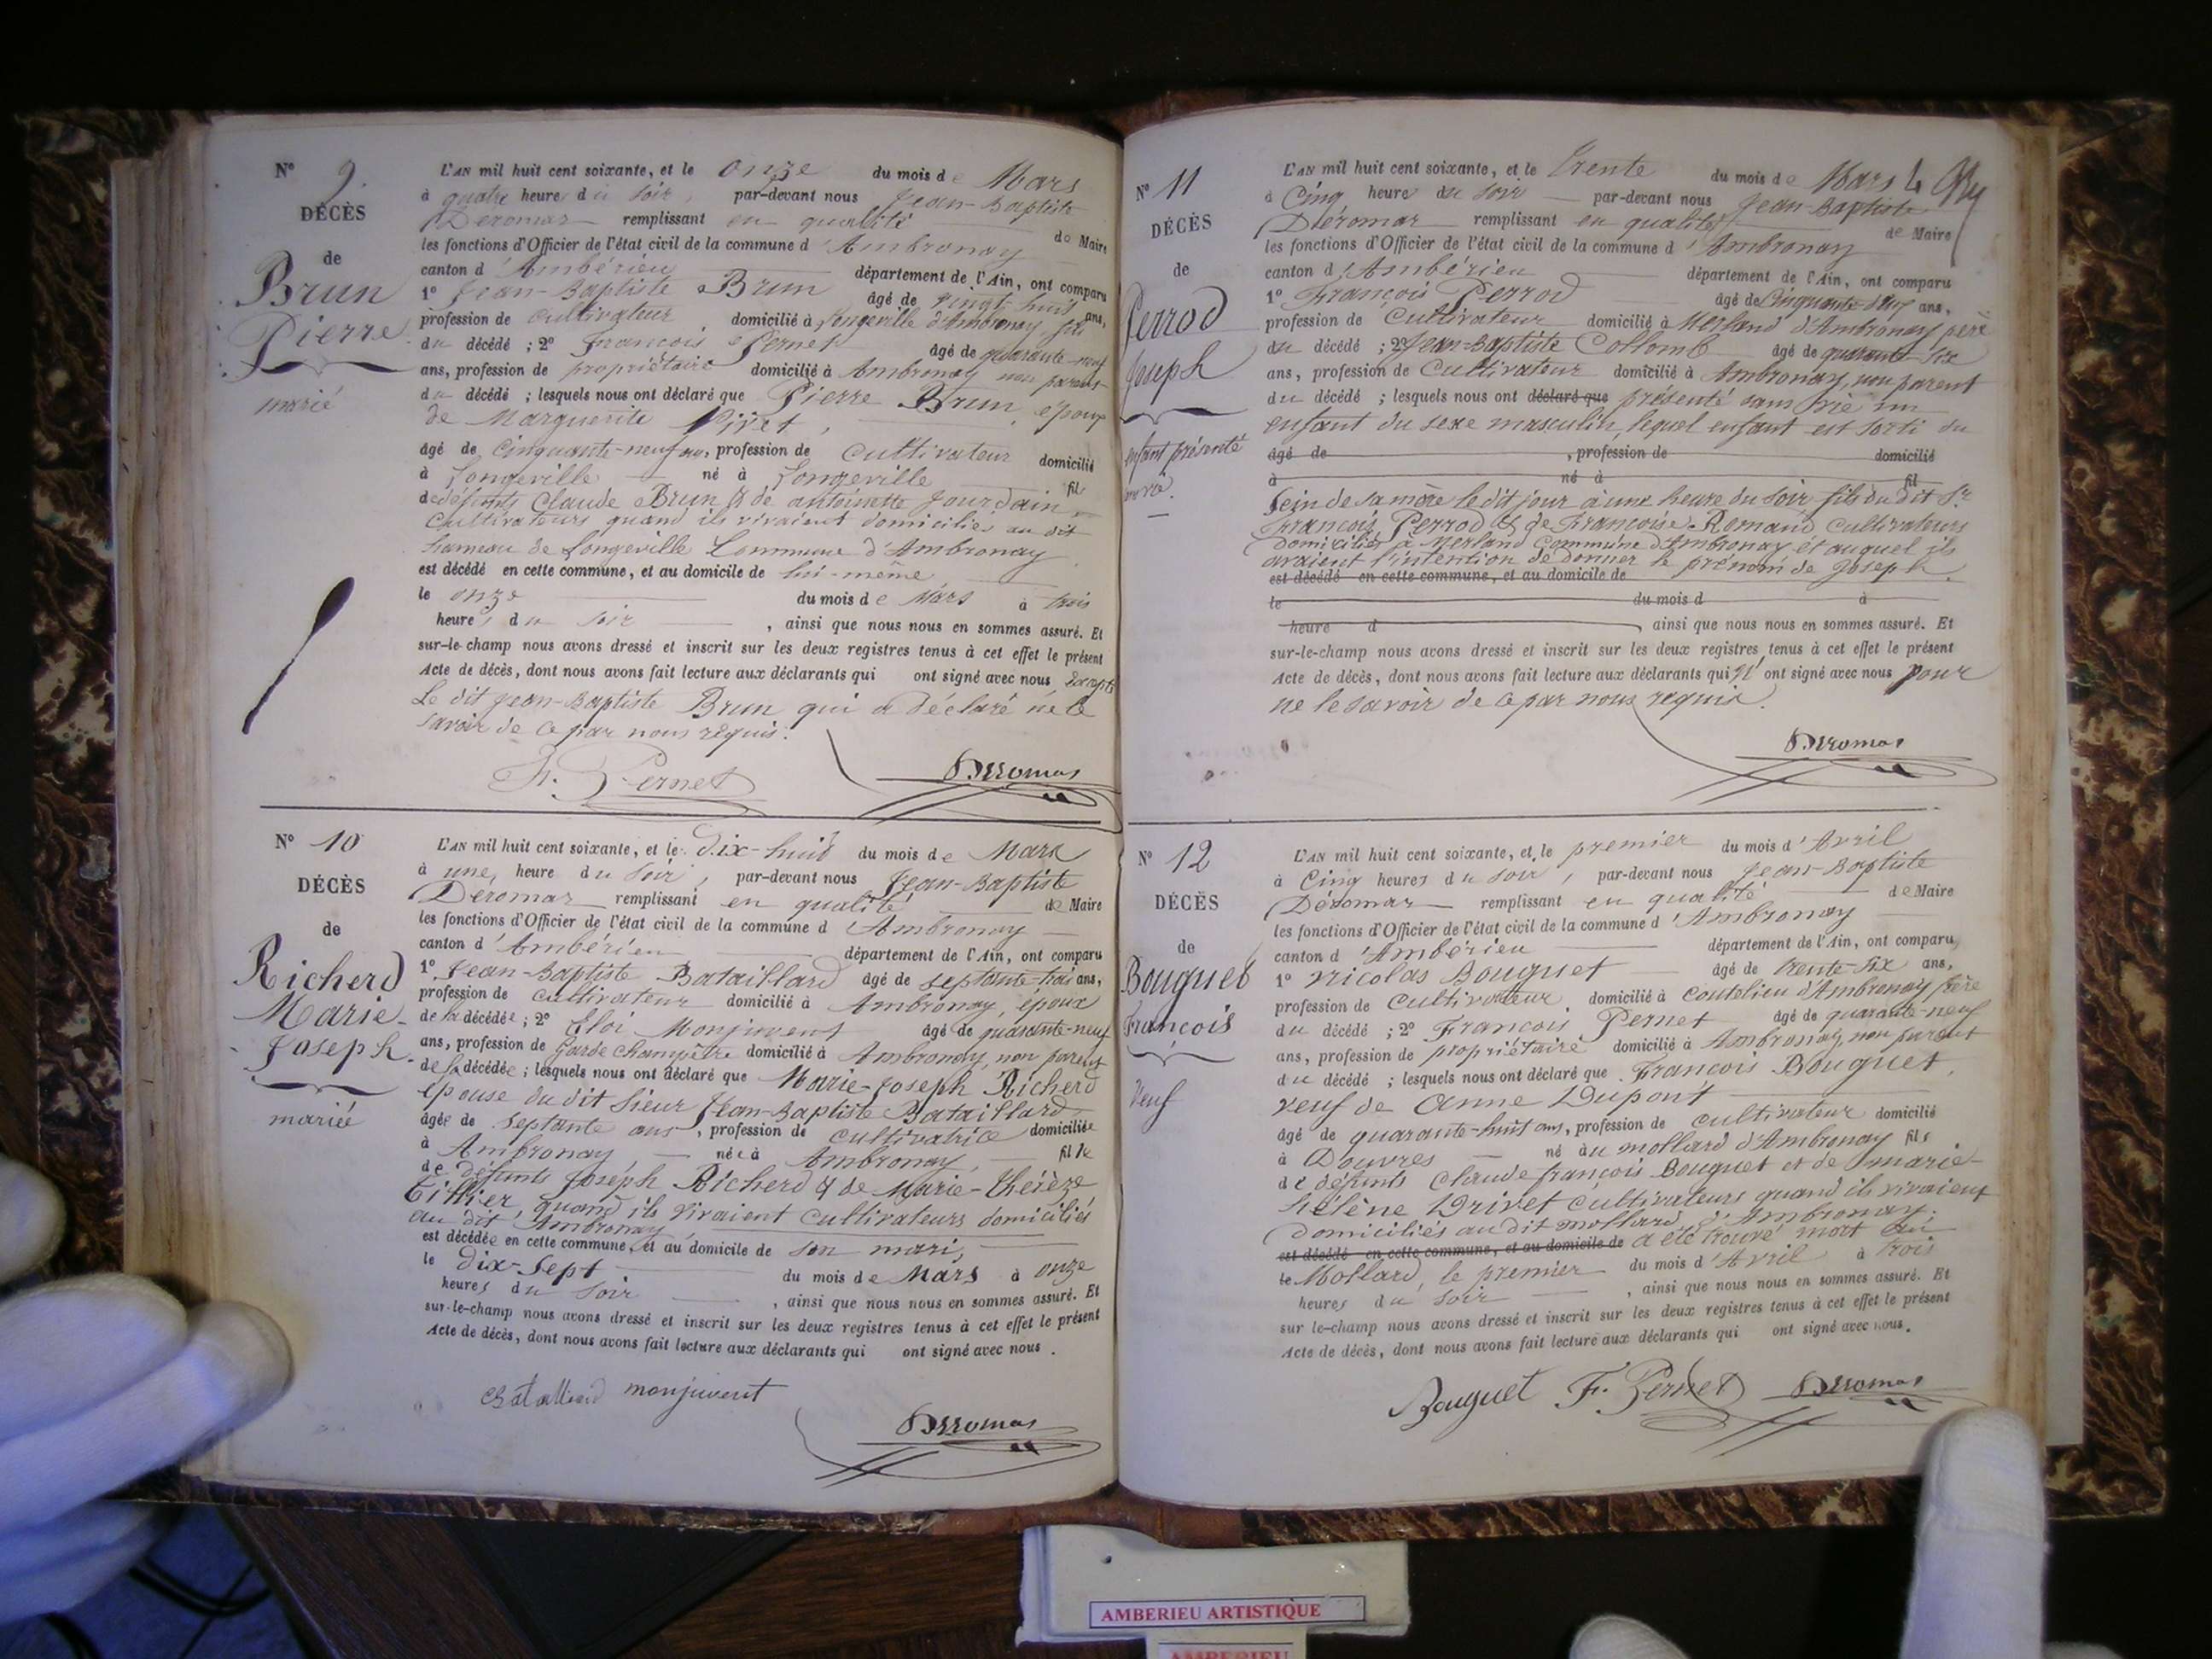 N° 9.
DÉCÈS
de
Brun
Pierre
marié
L'AN mil huit cent soixante, et le onze du mois de Mars
à quatre heures du soir, par-devant nous Jean-Baptiste
Déromas remplissant en qualité de Maire
les fonctions d'Officier de l'état civil de la commune d'Ambronay
canton d'Ambérieu département de l'Ain, ont comparu
1° Jean-Baptiste Brun âgé de vingt-huit ans,
profession de cultivateur, domicilié à Longeville d'Ambronay fils
du décédé ; 2° François Pernet âgé de quarante-neuf
ans, profession de propriétaire domicilié à Ambronay non parent
du décédé ; lesquels nous ont déclaré que Pierre Brun, époux
de Marguerite
âgé de cinquante-neuf ans, profession de cultivateur domicilié
à Longeville né à Longeville fils
de défunts Claude Brun & de antoinette Jourdain
cultivateurs quand ils vivaient domiciliés au dit
hameau de Longeville Commune d'Ambronay
est décédé en cette commune, et au domicile de lui-même
le onze du mois de Mars à trois
heures du soir, ainsi que nous nous en sommes assuré. Et
sur-le-champ nous avons dressé et inscrit sur les deux registres tenus à cet effet le présent
Acte de décès, dont nous avons fait lecture aux déclarants qui ont signé avec nous Excepté
Le dit Jean-Baptiste Brun qui a déclaré ne le
savoir de ce par nous requis.
F. Pernet Déromas
N° 10
DÉCÈS
de
Richerd
Marie-
Joseph.
mariée
L'AN mil huit cent soixante, et le dix-huit du mois de Mars
à une heure du soir, par-devant nous Jean-Baptiste
Déromas remplissant en qualité de Maire
les fonctions d'Officier de l'état civil de la commune d'Ambronay
canton d'Ambérieu département de l'Ain, ont comparu
1° Jean-Baptiste Bataillard âgé de septante-trois ans,
profession de cultivateur domicilié à Ambronay, époux
de la décédée ; 2° Eloi Monjuvent âgé de quarante-neuf
ans, profession de Garde champêtre domicilié à Ambronay, non parent
de la décédée ; lesquels nous ont déclaré que Marie-Joseph Richerd
épouse du dit Sieur Jean-Baptiste Bataillard
âgée de septante ans, profession de cultivatrice domiciliée
à Ambronay, née à Ambronay, fille
de défunts Joseph Richerd & de Marie-Thérèze
Tillier, quand ils vivaient cultivateurs domiciliés
au dit Ambronay
est décédée en cette commune, et au domicile de son mari,
le dix-sept du mois de Mars à onze
heures du soir, ainsi que nous nous en sommes assuré. Et
sur-le-champ nous avons dressé et inscrit sur les deux registres tenus à cet effet le présent
Acte de décès, dont nous avons fait lecture aux déclarants qui ont signé avec nous.
monjuvent
Déromas
N° 11
DÉCÈS
de
Perrod
Joseph
enfant présenté
sans vie.
L'AN mil huit cent soixante, et le trente du mois de Mars
à Cinq heures du soir par-devant nous Jean-Baptiste
Déromas remplissant en qualité de Maire
les fonctions d'Officier de l'état civil de la commune d'Ambronay
canton d'Ambérieu département de l'Ain, ont comparu
1° François Perrod âgé de Cinquante-deux ans,
profession de Cultivateur domicilié à Merland d'Ambronay père
du décédé ; 2° Jean-Baptiste Collomb âgé de quarante-six
ans, profession de Cultivateur domicilié à Ambronay, non parent
du décédé ; lesquels nous ont déclaré que présenté sans vie un
enfant du sexe masculin, lequel enfant est sorti du
âgé de, profession de domicilié
à né à fil
sein de sa mère le dit jour à une heure du soir fils du dit Sr
François Perrod & de Françoise Romand cultivateurs
domiciliés à Merland Commune d'Ambronay et auquel ils
avaient l'intention de donner le prénom de Joseph.
est décédé en cette commune, et au domicile de
le du mois d à
heure d, ainsi que nous nous en sommes assuré. Et
sur-le-champ nous avons dressé et inscrit sur les deux registres tenus à cet effet le présent
Acte de décès, dont nous avons fait lecture aux déclarants qui n'ont signé avec nous pour
ne le savoir de ce par nous requis.
Déromas
N° 12
DÉCÈS
de
Bouguet
François
Veuf
L'AN mil huit cent soixante, et le premier du mois d'Avril
à Cinq heures du soir, par-devant nous Jean-Baptiste
Déromas remplissant en qualité de Maire
les fonctions d'Officier de l'état civil de la commune d'Ambronay
canton d'Ambérieu département de l'Ain, ont comparu
1° Nicolas Bouguet âgé de trente-six ans,
profession de Cultivateur domicilié à Coutelieu d'Ambronay frère
du décédé ; 2° François Pernet âgé de quarante-neuf
ans, profession de propriétaire domicilié à Ambronay, non parent
du décédé ; lesquels nous ont déclaré que François Bouguet,
veuf de Anne Dupont
âgé de quarante-huit ans, profession de cultivateur domicilié
à Douvres né au mollard d'Ambronay fils
de défunts Claude françois Bouguet et de marie-
hélène Drivet cultivateurs quand ils vivaient
domiciliés au dit mollard d'Ambronay.
est décédé en cette commune, et au domicile de a été trouvé mort au
le Mollard, le premier du mois d'Avril à trois
heures du soir, ainsi que nous nous en sommes assuré. Et
sur le-champ nous avons dressé et inscrit sur les deux registres tenus à cet effet le présent
Acte de décès, dont nous avons fait lecture aux déclarants qui ont signé avec nous.
Bouguet F. Pernet Déromas
AMBERIEU ARTISTIQUE
AMBERIEU